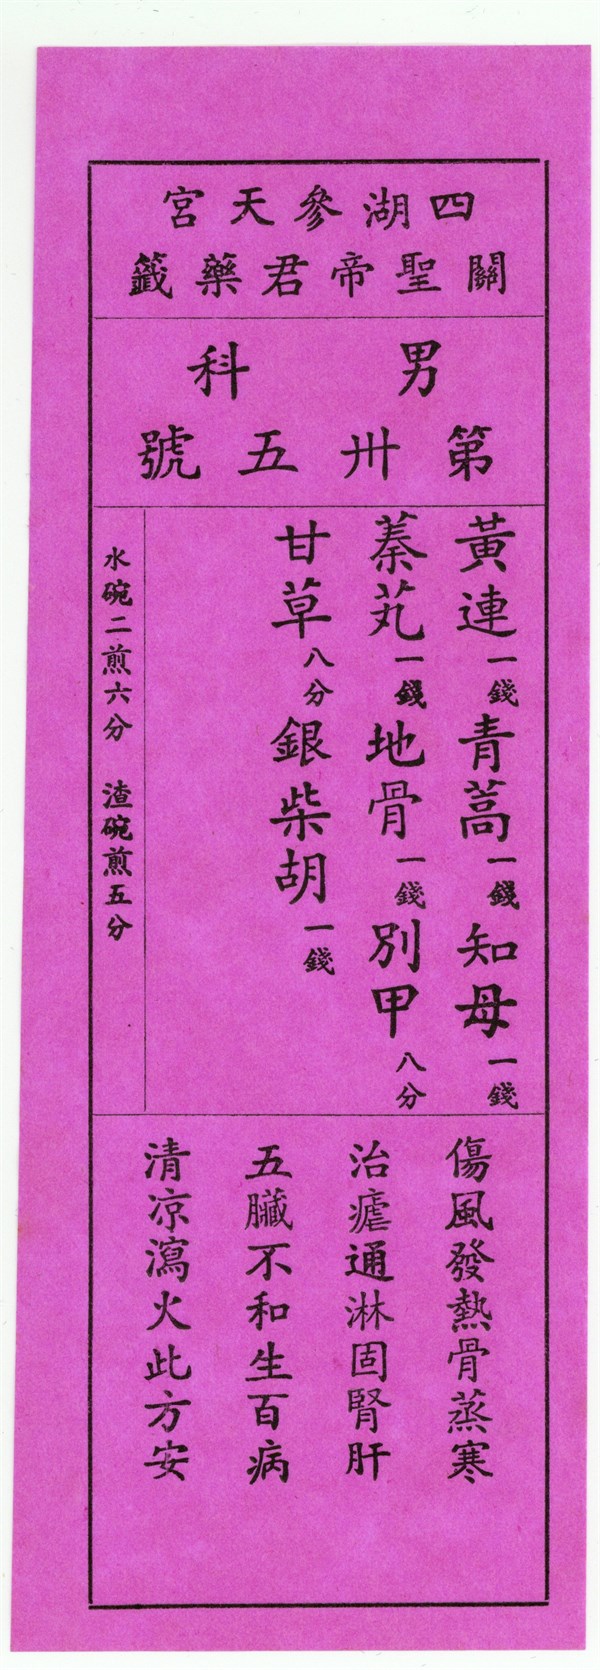 四湖參天宮
關聖帝君藥籤
男科
第卅五號
黃連一錢青蒿一錢知母一錢
蓁艽一錢地骨一錢別甲八分
甘草八分銀柴胡一錢
水碗二煎六分 渣碗煎五分
傷風發熱骨蒸寒
治瘧通淋固腎肝
五臟不和生百病
清凉瀉火此方安